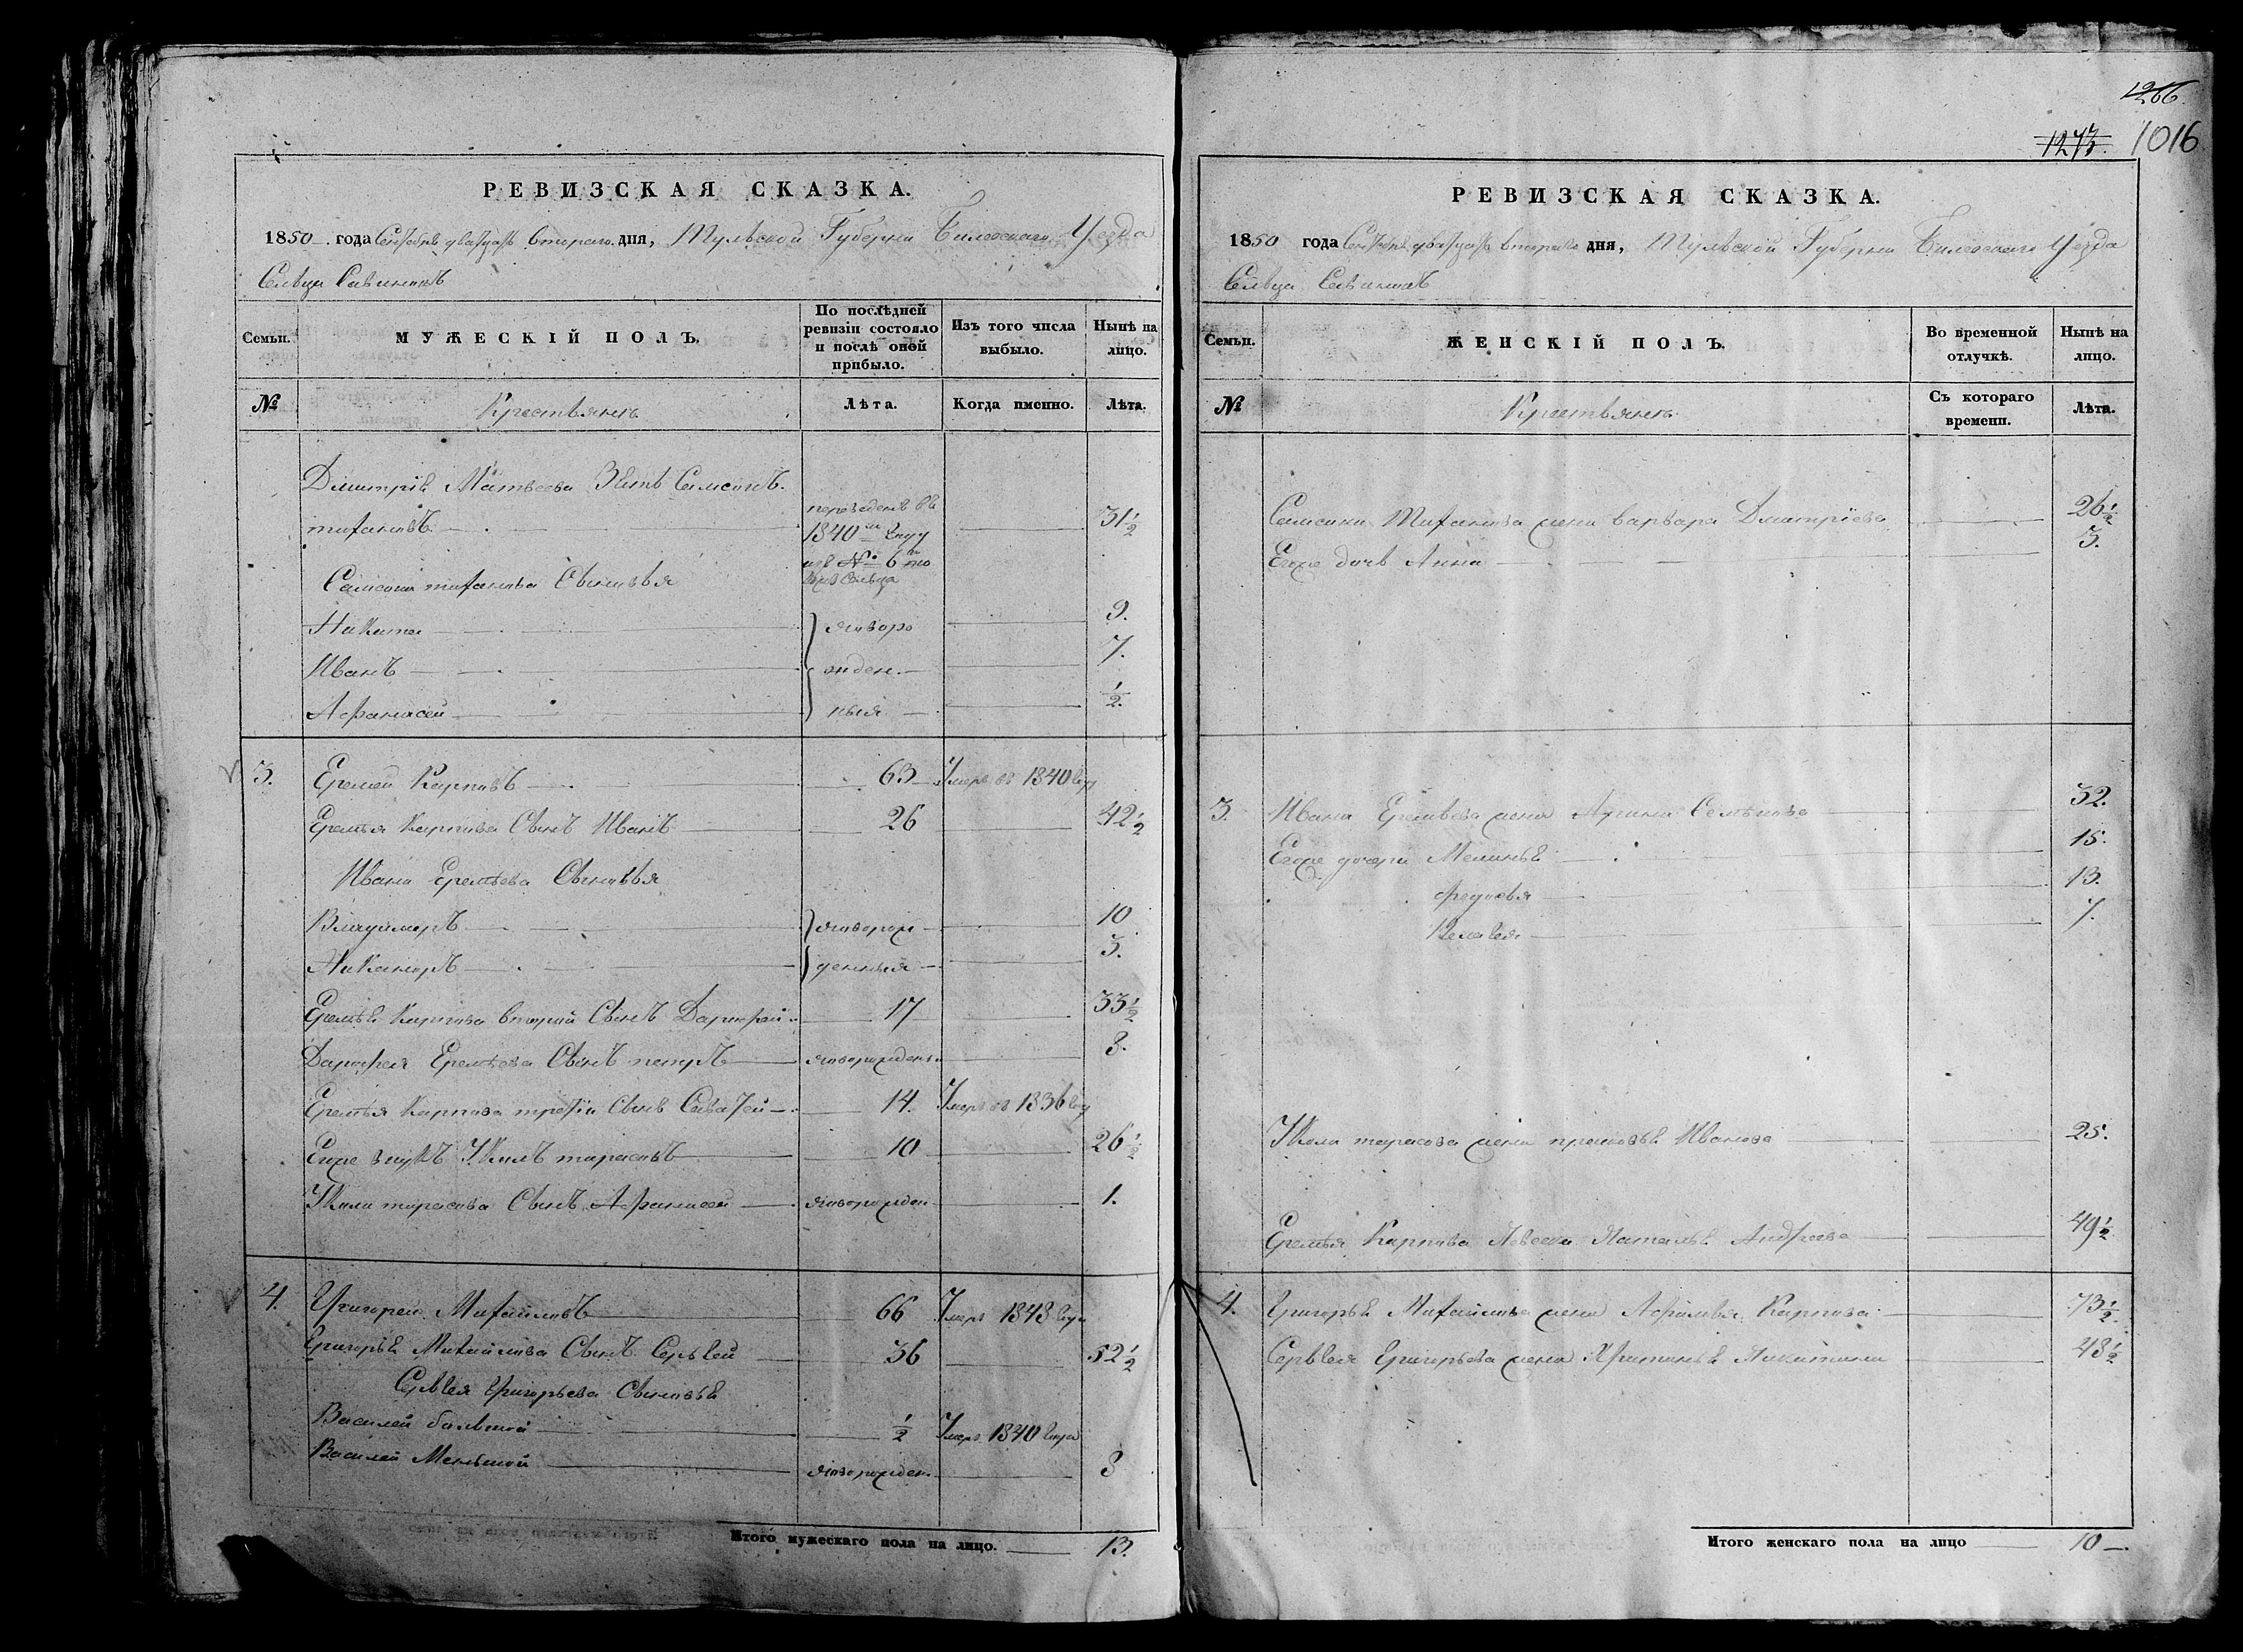 РЕВИЗСКАЯ СКАЗКА.
1850 года Сентября двадцать втораго дня, Тульской Губерніи Белевскаго Уезда
Сельца Савинокъ
Семьи.
МУЖЕСКІЙ ПОЛЪ.
По послѣдней ревизіи состояло и послѣ оной прибыло.
Изъ того числа выбыло.
Нынѣ на лицо.
№
Крестьяне
Лѣта.
Когда именно.
Лѣта.
Дмитрія Матвеева Зять Самсонъ
тихановъ
переведенъ въ
1840 году
изъ № 6 го
сельца
31 1/2
Самсона тиханова Сыновья
Никита
9.
Иванъ
7.
Афанасей
1/2
новоро
жден
ныя
3. Еремей Карповъ 63 Умеръ въ 1840 году
Еремея Карпова Сынъ Иванъ 26 42 1/2
Ивана Еремеева Сыновья
Владимеръ 10
Никаноръ 3.
новорож
денныя
Еремея Карпова вторый Сынъ Дарофей 17 33 1/2
Дарофея Еремеева Сынъ петръ новорожден 8.
Еремея Карпова третій Сынъ Савастей 14. Умеръ въ 1836 году
Его внукъ тарасовъ 10 26 1/2
тарасова Сынъ Афанасей новорожден 1.
4. Григорей Михайловъ 66 Умеръ 1848 года
Григорья Михайлова Сынъ Сергей 36 52 1/2
Сергея Григорьева Сыновья
Василей большой 1/2 Умеръ 1840 года
Василей Меньшой новорожден 8
Итого мужескаго пола на лицо. 13.
1266.
1273. 1016
РЕВИЗСКАЯ СКАЗКА.
1850 года Сентября двадцать втораго дня, Тульской Губерніи Белевскаго Уезда
Сельца Савинокъ
Семьи.
ЖЕНСКІЙ ПОЛЪ.
Во временной отлучкѣ.
Нынѣ на лицо.
№
Крестьяне
Съ котораго времени.
Лѣта.
Самсона Тиханова жена варвара Дмитріева 26 1/2
Егоже дочь Анна 3.
3. Ивана Еремеева жена Арина Семенова 32.
Егоже дочери Меланья 15.
Федосья 13.
Пелагея 7.
тарасова жена прасковья Иванова 25.
Еремея Карпова Невеска Наталья Андреева 49 1/2
4. Григорья Михайлова жена Афимья Карпова 73 1/2
Сергея Григорьева жена Никитина 48 1/2
Итого женскаго пола на лицо 10